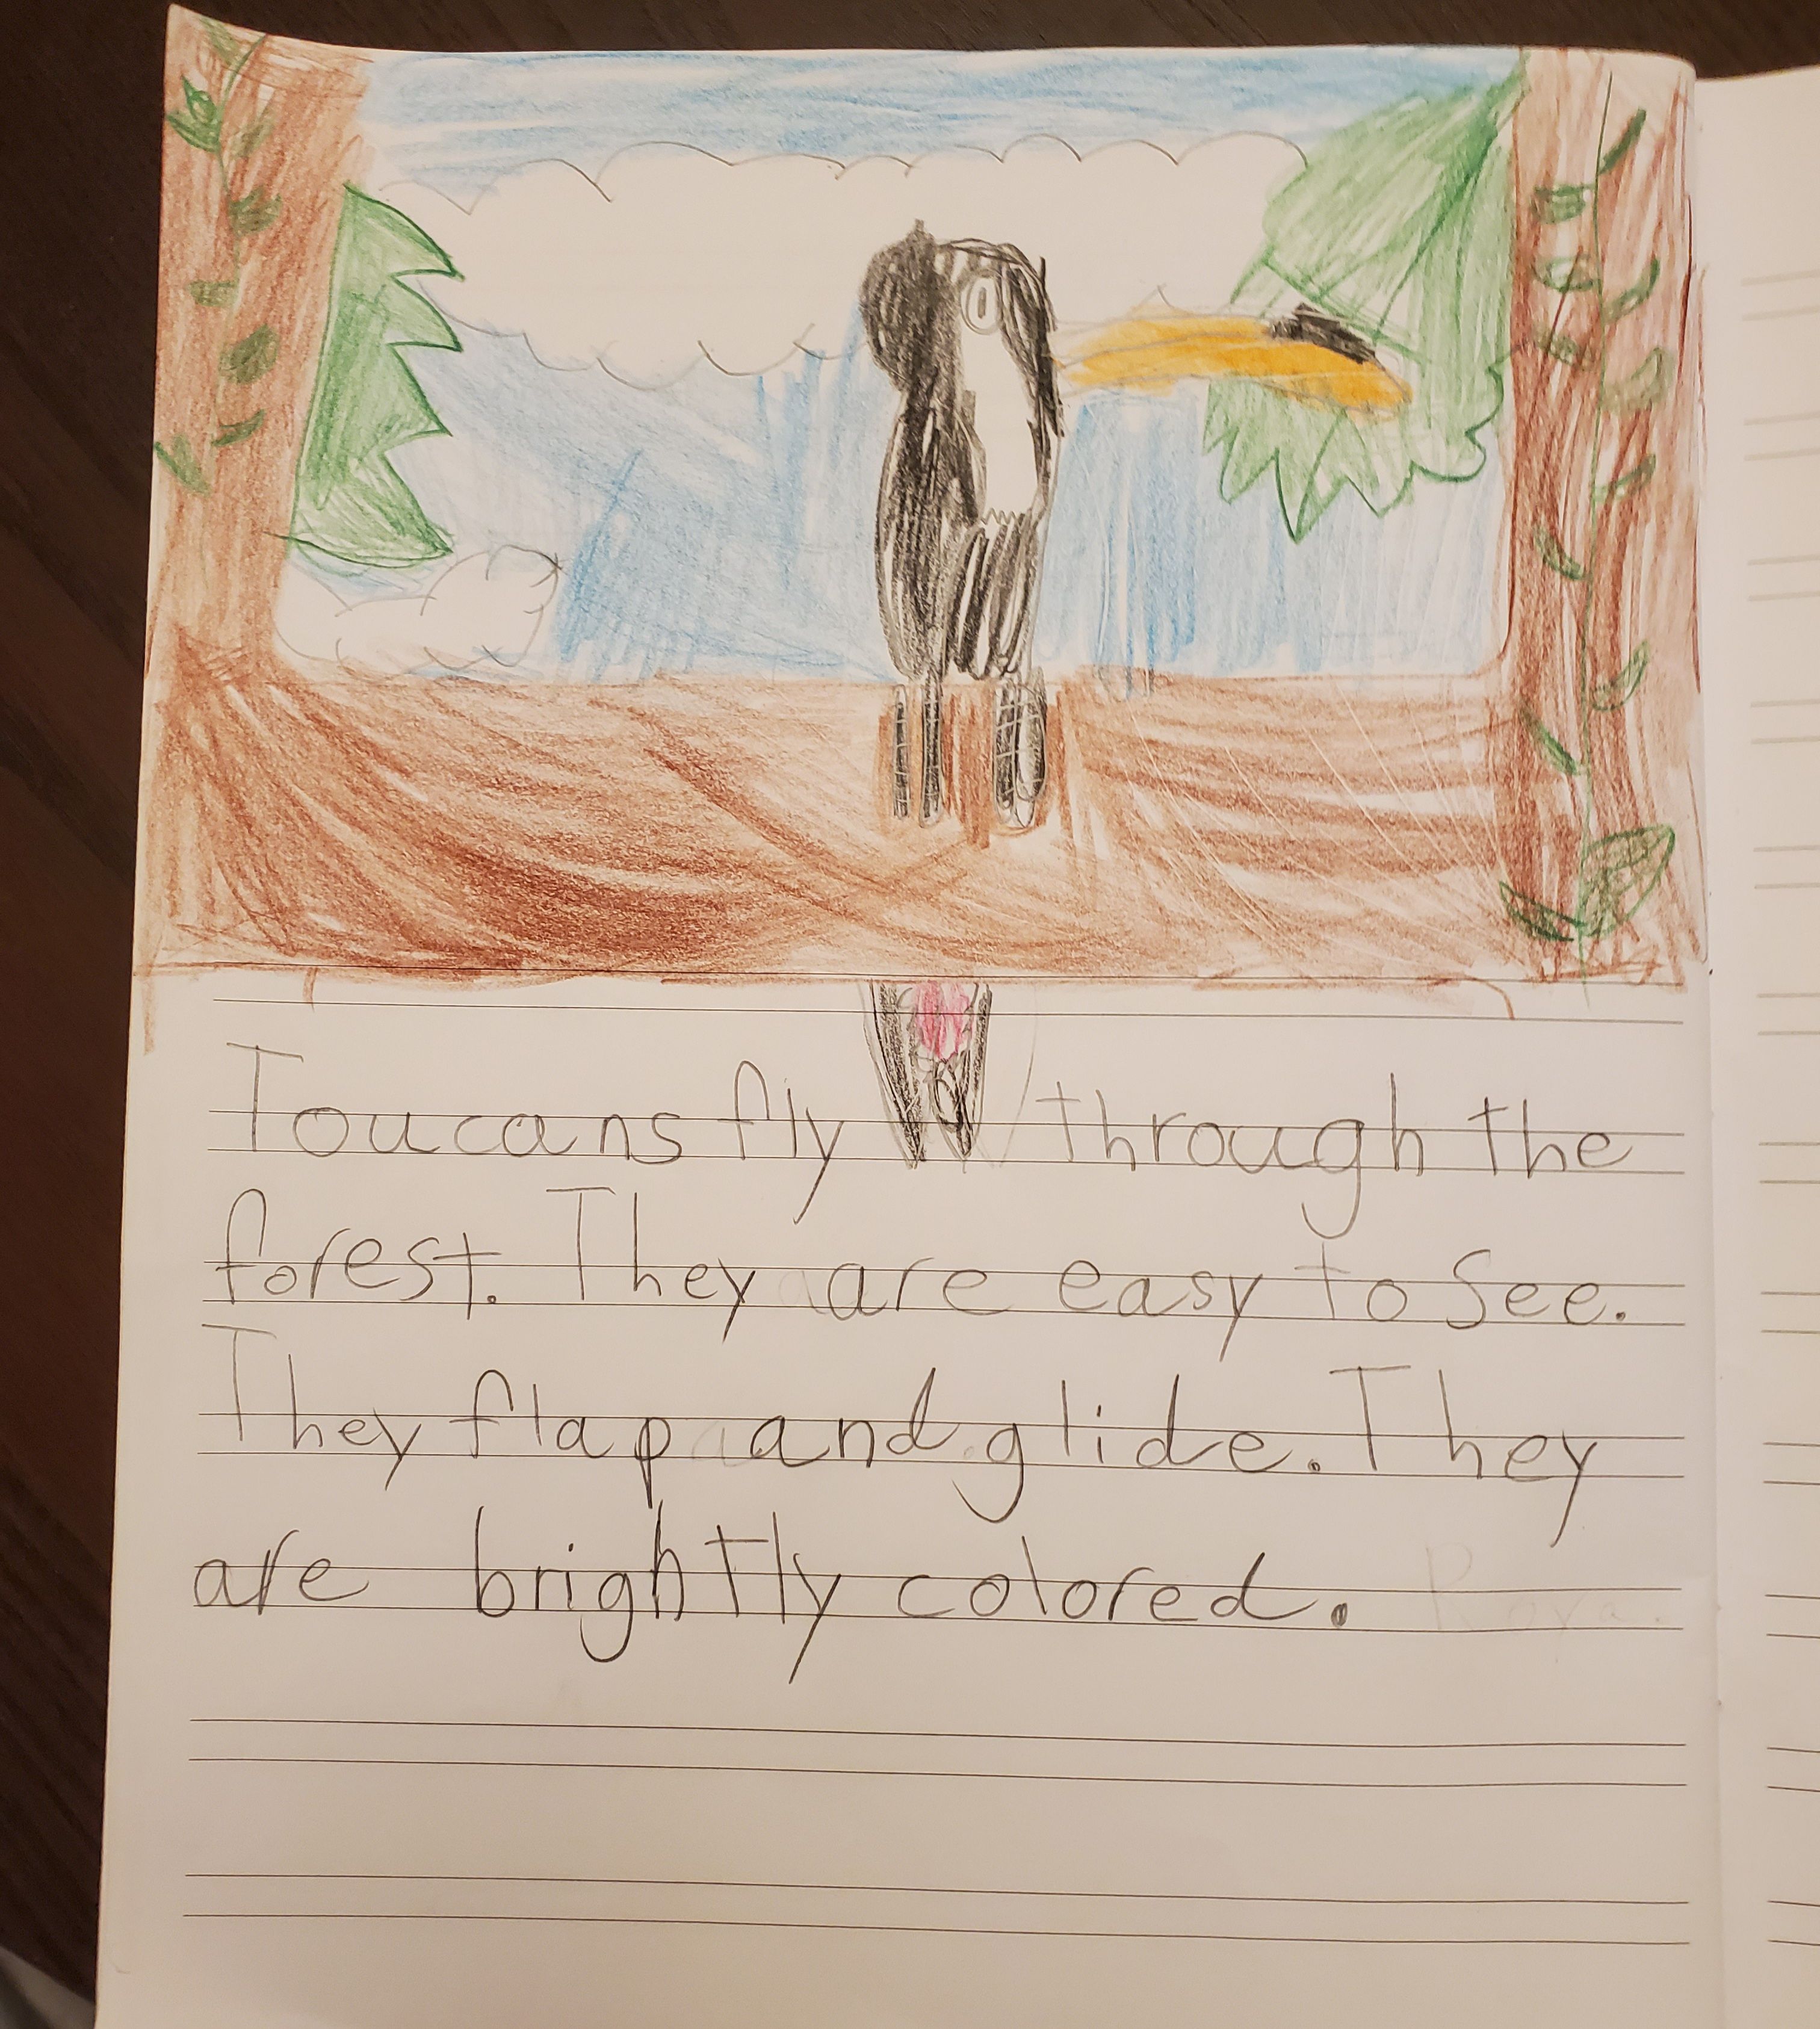 Toucans fly through the
forest. They are easy to see.
They flap and glide. They
are brightly colored.